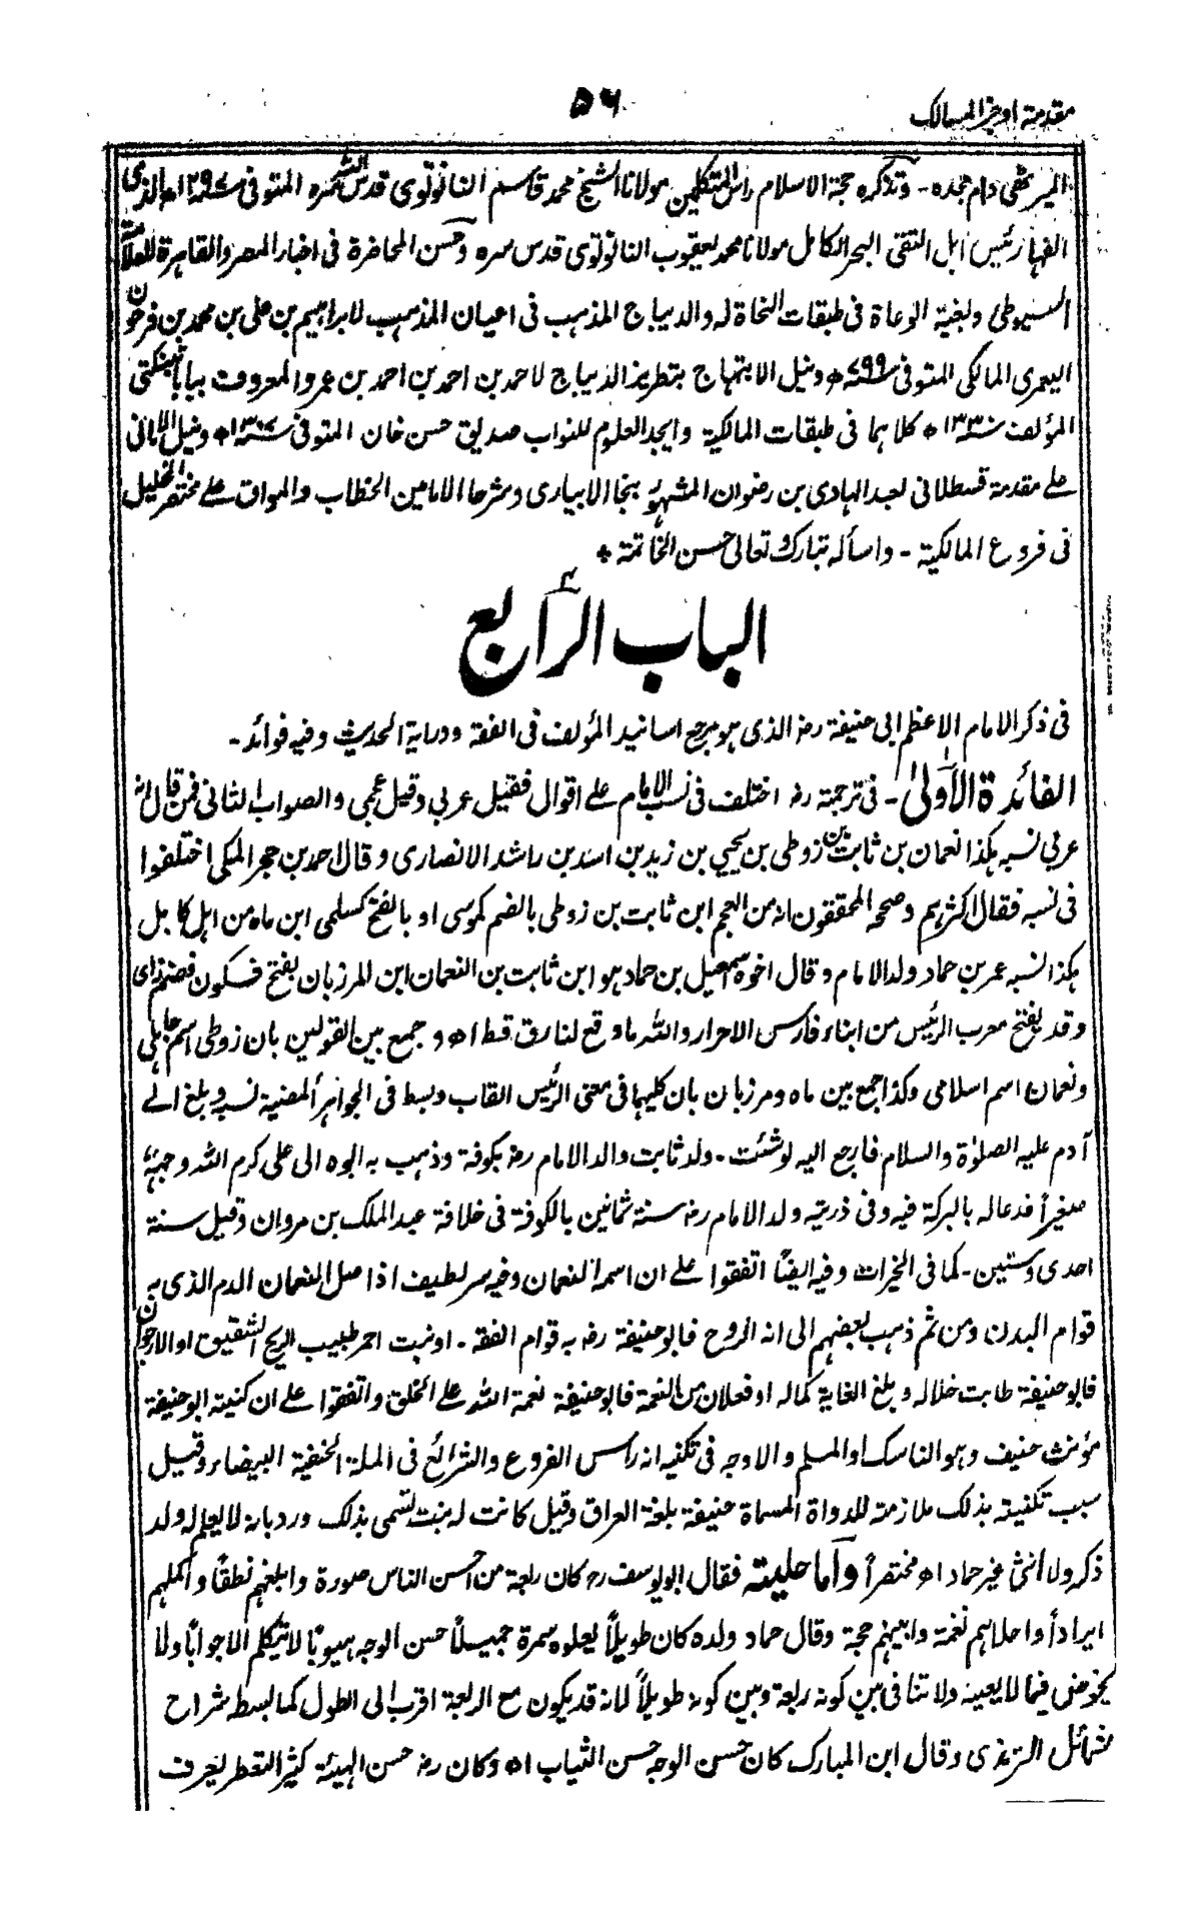 مقدمة اوجز المسالك
٥٦
الميرتهي دام مجده - وتذكره حجة الاسلام راس المتكلمين مولانا الشيخ محمد قاسم النانوتوي قدس الله سره المتوفى ١٢٩٧ه الذي
الفها رئيس اهل التقى البحر الكامل مولانا محمد يعقوب النانوتوي قدس سره وحسن المحاضرة في اخبار المصر والقاهرة للعلامة
السيوطي وبغية الوعاة في طبقات النحاة له والديباج المذهب في اعيان المذهب لابراهيم بن علي بن محمد بن فرحون
اليعمري المالكي المتوفى ٧٩٩ه ونيل الابتهاج بتطريز الديباج لاحمد بن احمد بن احمد بن عمر والمعروف ببابا تنبكتي
المؤلف كلاهما في طبقات المالكية وابجد العلوم للنواب صديق حسن خان المتوفى ١٣٠٧ه ونيل الاماني
على مقدمة قسطلاني لعبد الهادي بن رضوان المشهور بنجا الابياري وشرحا الامامين الحطاب والمواق على مختصر الخليل
في فروع المالكية - واسأله تبارك وتعالى حسن الخاتمة ٭
الباب الرابع
في ذكر الامام الاعظم ابي حنيفة رض الذي هو مرجع اسانيد المؤلف في الفقه ودراية الحديث وفيه فوائد -
الفائدة الاولى - في ترجمته رض اختلف في نسب الامام على اقوال فقيل عربي وقيل عجمي والصواب الثاني فمن قال انه
عربي نسبه هكذا نعمان بن ثابت بن زوطى بن يحيى بن زيد بن اسد بن راشد الانصاري وقال احمد بن حجر المكي اختلفوا
في نسبه فقال اكثرهم وصححه المحققون انه من العجم ابن ثابت بن زوطى بالضم كموسى او بالفتح كسلمى ابن ماه من اهل كابل
هكذا نسبه عمر بن حماد ولد الامام وقال اخوه اسمعيل بن حماد هو ابن ثابت بن النعمان ابن المرزبان بفتح فسكون فضم زاي
وقد يفتح معرب الرئيس من ابناء فارس الاحرار والله ما وقع لنا رق قط اه وجمع بين القولين بان زوطى اسم جاهلي
ونعمان اسم اسلامي وكذا جمع بين ماه ومرزبان بان كليهما في معنى الرئيس القاب وبسط في الجواهر المضية نسبه وبلغ الى
آدم عليه الصلوٰة والسلام فارجع اليه لو شئت - ولد ثابت والد الامام رض بكوفة وذهب به ابوه الى علي كرم الله وجهه
صغيراً فدعا له بالبركة فيه وفي ذريته ولد الامام رض سنة ثمانين بالكوفة في خلافة عبد الملك بن مروان وقيل سنة
احدى وستين - كما في الخيرات وفيه ايضاً اتفقوا على ان اسمه النعمان وفيه سر لطيف اذ اصل النعمان الدم الذي به
قوام البدن ومن ثم ذهب بعضهم الى انه الروح فابو حنيفة رض به قوام الفقه - او نبت احمر طيب الريح الشقيق او الارجوان
فابو حنيفة طابت خلاله وبلغ الغاية كماله او فعلان من النعمة فابو حنيفة نعمة الله على الخلق واتفقوا على ان كنيته ابو حنيفة
مؤنث حنيف وهو الناسك او المسلم والاوجه في تكنيه انه راس الفروع والشرائع في الملة الحنفية البيضاء وقيل
سبب تكنيته بذلك ملازمة للدواة المسماة حنيفة بلغة العراق وقيل كانت له بنت تسمى بذلك ورد بانه لا يعلم له ولد
ذكر ولا انثى غير حماد اه مختصراً وآما حليته فقال ابو يوسف رح كان ربعة من احسن الناس صورة وابلغهم نطقاً واكملهم
ايراداً واحلاهم نغمة وابينهم حجة وقال حماد ولده كان طويلاً يعلوه سمرة جميلاً حسن الوجه هيوباً لا يتكلم الا جواباً ولا
يخوض فيما لا يعنيه ولا تنافي بين كونه ربعة وبين كونه طويلاً لانه قد يكون مع الربعة اقرب الى الطول كما بسط شراح
شمائل الترمذي وقال ابن المبارك كان حسن الوجه حسن الثياب اه وكان رض حسن الهيئة كثير التعطر يعرف